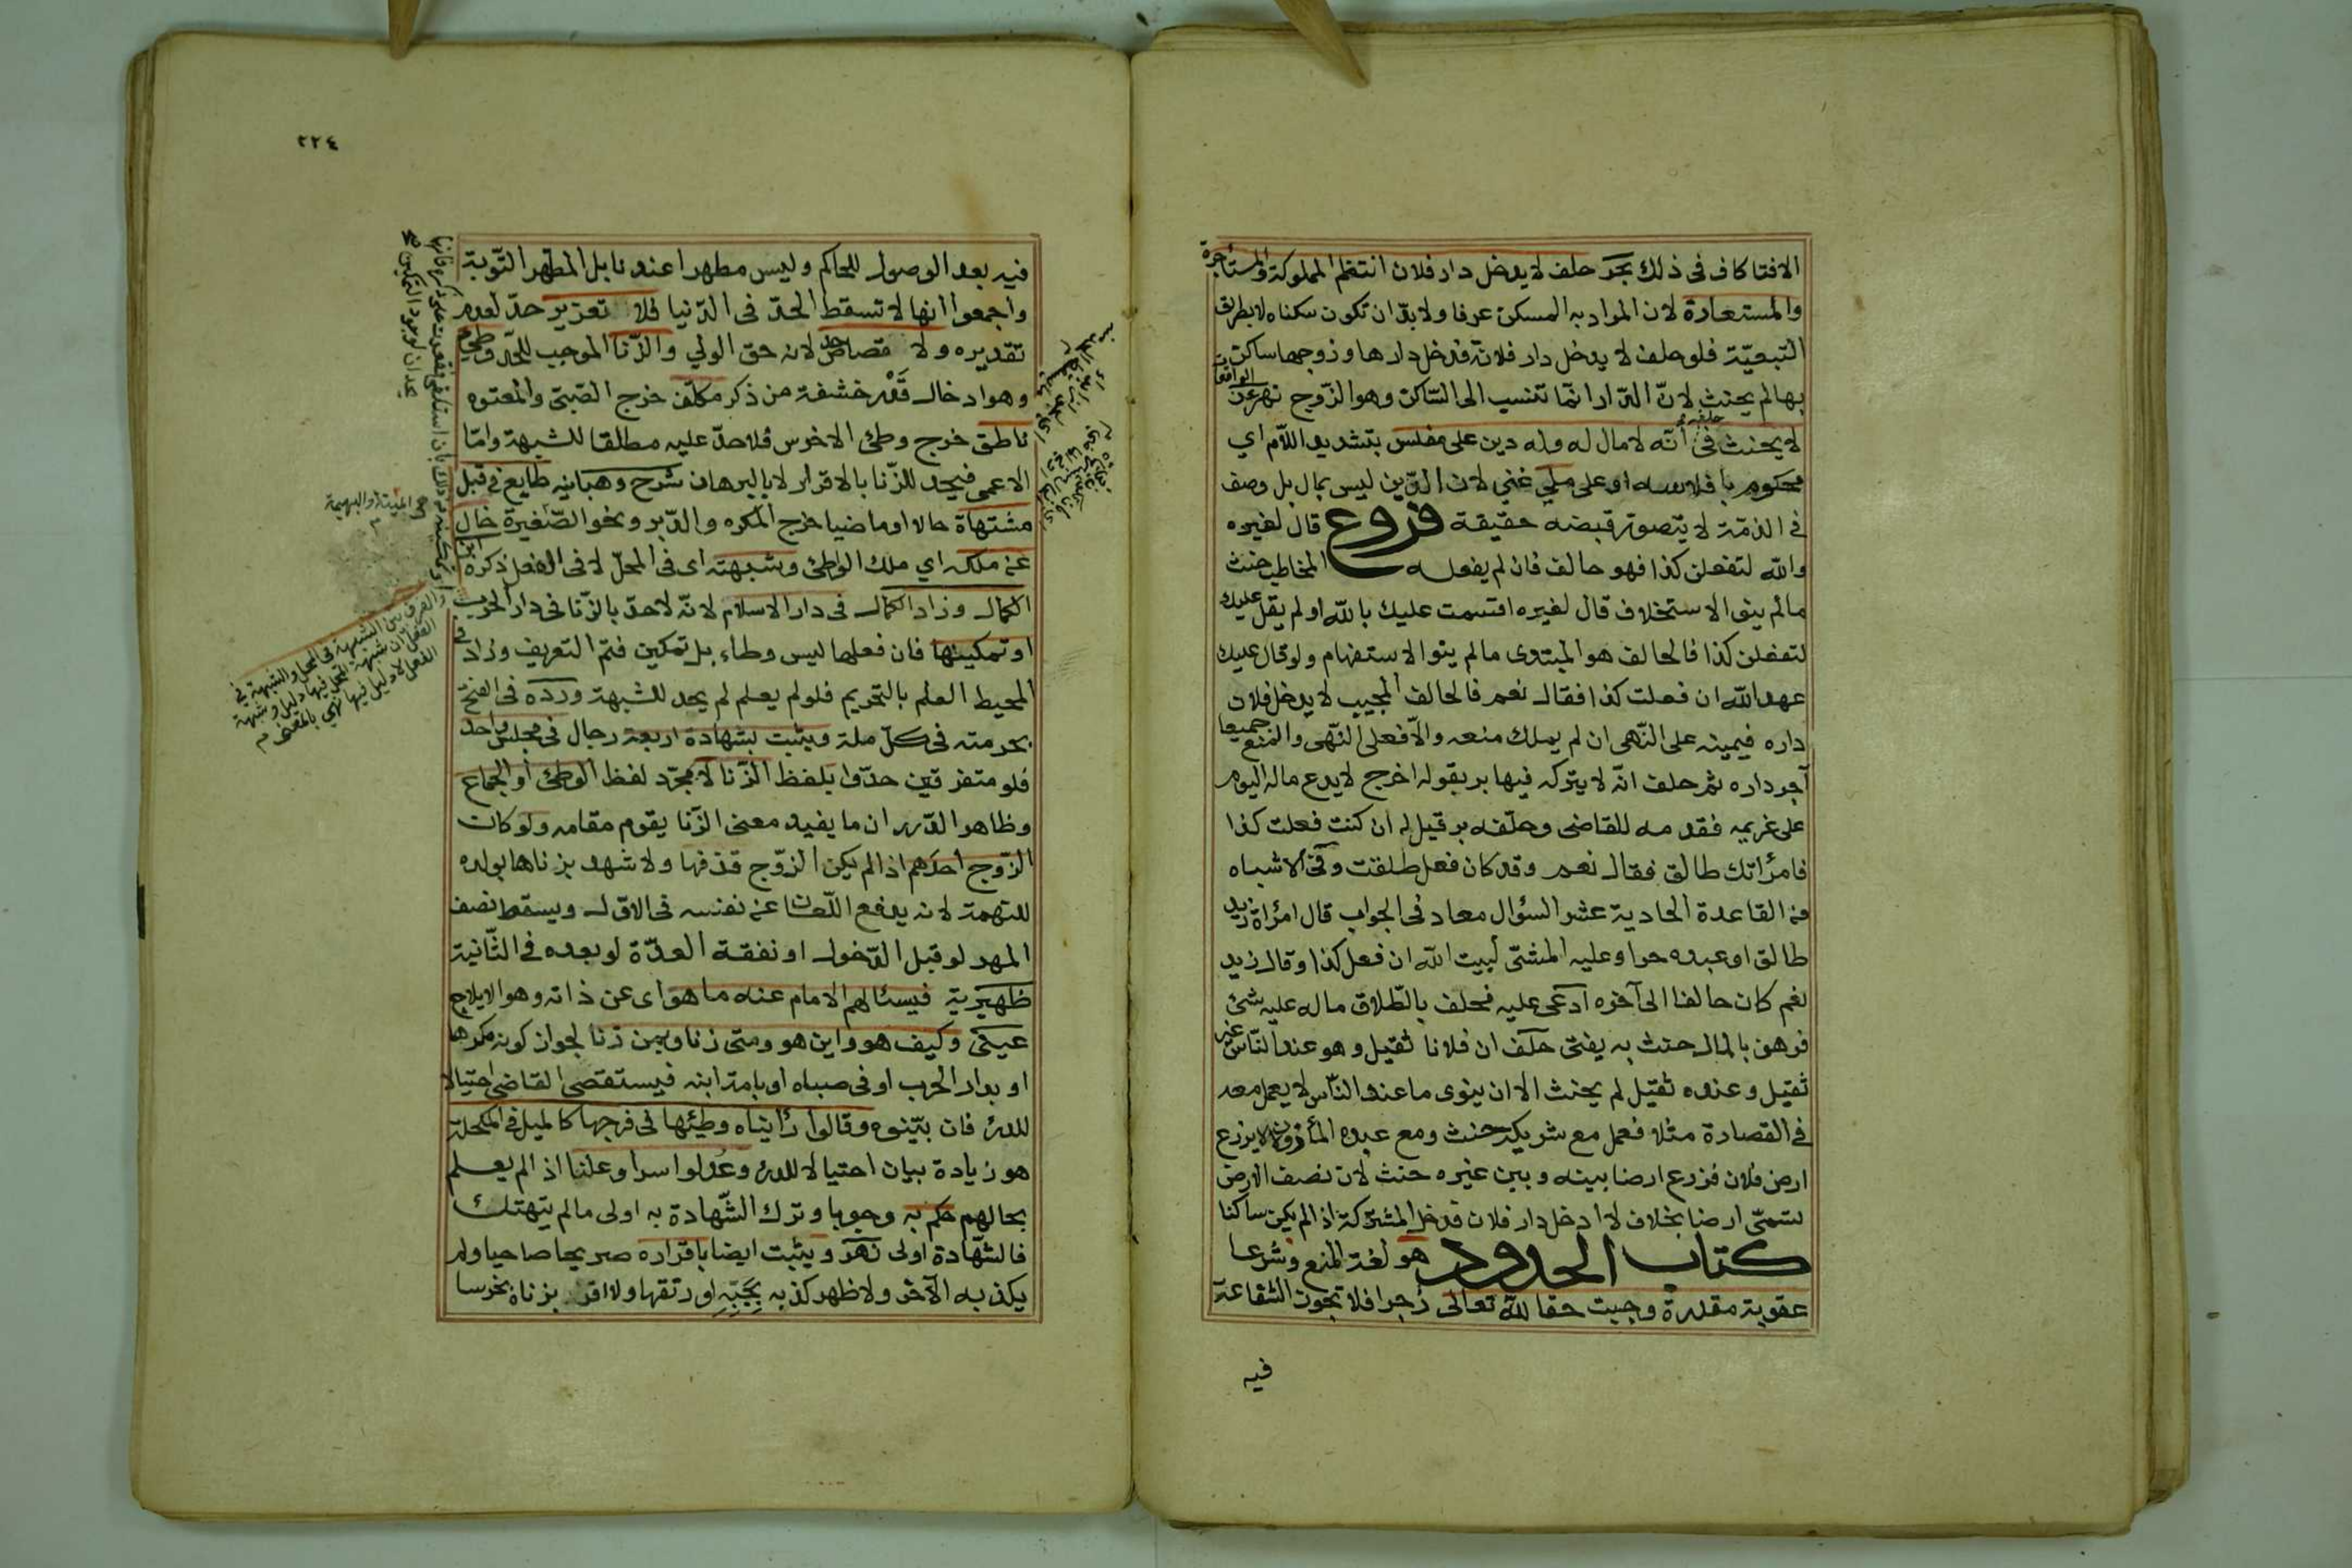 الافتا كاف فى ذلك بحر حلف لا يدخل دار فلان انتظم المملوكة والمستأجرة
والمستعارة لان المراد به المسكن عرفا ولا بدّ ان تكون سكناه لا بطريق
التبعيّة فلو حلف لا يدخل دار فلانة فدخل دارها وزوجها ساكن
بها لم يحنث لانّ الدّار انّما تنسب الى السّاكن وهو الزّوج نهر عن الواقعات
لا يحنث فى حلفه أنّه لا مال له وله دين على مفلس بتشديد اللّام اي
محكوم بافلاسه او على ملي غني لان الدّين ليس بمال بل وصف
فى الذمّة لا يتصوّر قبضه حقيقة فروع قال لغيره
والله لتفعلن كذا فهو حالف فان لم يفعله المخاطب حنث
مالم ينو الاستحلاف قال لغيره اقسمت عليك بالله او لم يقل عليك
لتفعلن كذا فالحالف هو المبتدى مالم ينو الاستفهام ولو قال عليك
عهد الله ان فعلت كذا فقال نعم فالحالف المجيب لا يدخل فلان
داره فيمينه على النّهى ان لم يملك منعه والّا فعلى النّهى والمنع جميعا
آجر داره ثم حلف انّه لا يتركه فيها بر بقوله اخرج لا يدع ماله اليوم
على غريمه فقدمه للقاضى وحلّفه بر قيل له ان كنت فعلت كذا
فامرأتك طالق فقال نعم وقد كان فعل طلقت وفى الاشباه
من القاعدة الحادية عشر السؤال معاد فى الجواب قال امرأة زيد
طالق او عبده حر او عليه المشى لبيت الله ان فعل كذا وقال زيد
نعم كان حالفا الى آخره ادعى عليه فحلف بالطّلاق ماله عليه شئ
فبرهن بالمال حنث به يفتى حلف ان فلانا ثقيل وهو عند النّاس غير
ثقيل وعنده ثقيل لم يحنث الا ان ينوى ما عند النّاس لا يعمل معه
فى القصارة مثلا فعمل مع شريكه حنث ومع عبده المأذون لا لا يزرع
ارض فلان فزرع ارضا بينه وبين غيره حنث لان نصف الارض
تسمّى ارضا بخلاف لا ادخل دار فلان فدخل المشتركة اذا لم يكن ساكنا
كتاب الحدود هو لغة المنع وشرعا
عقوبة مقدرة وجبت حقا لله تعالى زجرا فلا تجوز الشفاعة
فيه
٢٢٤
فيه بعد الوصول للحاكم وليس مطهرا عندنا بل المطهر التّوبة
واجمعوا انها لا تسقط الحدّ فى الدّنيا فلا تعزير حدّ لعدم
تقديره ولا قصاص حد لانه حق الولي والزّنا الموجب للحّد وطئ
وهو ادخال قدر حشفة من ذكر مكلّف خرج الصّبىّ والمعتوه
ناطق خرج وطئ الاخرس فلا حدّ عليه مطلقا للشبهة وامّا
الاعمى فيحد للزّنا بالاقرار لا بالبرهان شرح وهبانيه طايع فى قبل
مشتهاة حالا او ماضيا خرج المكره والدّبر ونحو الصّغيرة خال
عن ملكه اي ملك الواطئ وشبهته اى فى المحلّ لا فى الفعل ذكره ابن
الكمال وزاد الكمال فى دار الاسلام لانّه لا حدّ بالزّنا فى دار الحرب
او تمكينها فان فعلها ليس وطاء بل تمكين فتم التعريف وزاد فى
المحيط العلم بالتحريم فلو لم يعلم لم يحد للشبهة وردّه فى الفتح
بحرمته فى كلّ ملة ويثبت بشهادة اربعة رجال فى مجلس واحد
فلو متفرقين حدّوا بلفظ الزّنا لا مجرّد لفظ الوطئ او الجماع
وظاهر الدّرر ان ما يفيد معنى الزّنا يقوم مقامه ولو كان
الزّوج احدهم اذا لم يكن الزّوج قذفها ولا شهد بزناها بولده
للتهمة لانه يدفع اللّعان عن نفسه فى الاوّل ويسقط نصف
المهر لو قبل الدّخول او نفقة العدّة لو بعده فى الثّانية
ظهيرية فيسئالهم الامام عنه ما هو اى عن ذاته وهو الايلاج
عينى وكيف هو واين هو ومتى زنا وبمن زنا لجواز كونه مكرها
او بدار الحرب او فى صباه او بامة ابنه فيستقصى القاضى احتيالا
للدرء فان بيّنوه وقالوا رأيناه وطئها فى فرجها كالميل فى المكحلة
هو زيادة بيان احتيالا للدرء وعُدلوا سرا وعلنا اذا لم يعلم
بحالهم حكم به وجوبا وترك الشّهادة به اولى مالم يتهتك
فالشّهادة اولى نهر ويثبت ايضا باقراره صريحا صاحيا ولم
يكذبه الآخر ولا ظهر كذبه بجبّه او رتقها ولا اقر بزناه بخرسا
او تمكينه من ذلك بأن استلقى فقعدت على ذكره فانهما
يحدان لوجود التمكين
الميتة والبهيمة م
والفرق بين الشبهة فى المحل والشبهة في
الفعل ان شبهة المحل فيها دليل وشبهة
الفعل لا دليل فيها